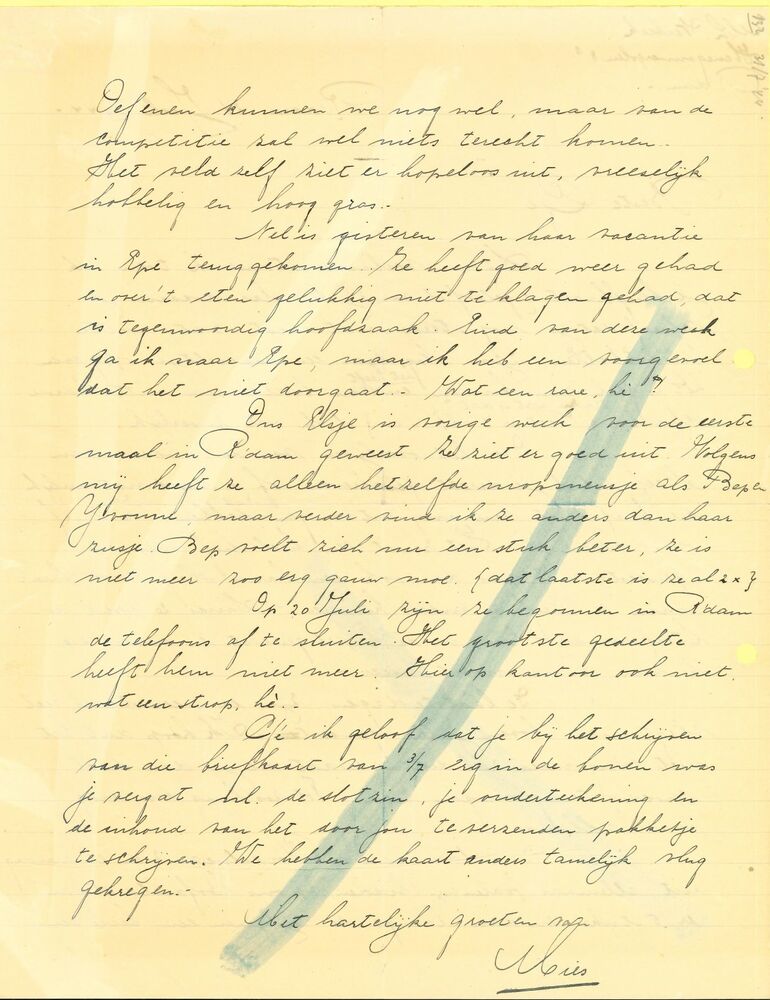 Oefenen kunnen we nog wel, maar van de
competitie zal wel niets terecht komen.
Het veld zelf ziet er hopeloos uit, vreeselijk
hobbelig en hoog gras.-
Nel is gisteren van haar vacantie
in Epe teruggekomen. Ze heeft goed weer gehad
en over 't eten gelukkig niet te klagen gehad, dat
is tegenwoordig hoofdzaak. Eind van deze week
ga ik naar Epe, maar ik heb een voorgevoel
dat het niet doorgaat.- Wat een rare, hè?
Ons Elsje is vorige week voor de eerste
maal in R'dam geweest. Ze ziet er goed uit. Volgens
mij heeft ze alleen hetzelfde mopsneusje als Bep en
Yvonne, maar verder vind ik ze anders dan haar
zusje. Bep voelt zich nu een stuk beter, ze is
niet meer zoo erg gauw moe. (dat laatste is ze al 2x)
Op 20 Juli zijn ze begonnen in R'dam
de telefoons af te sluiten. Het grootste gedeelte
heeft hem niet meer. Hier op kantoor ook niet,
wat een strop, hè..
Cé ik geloof dat je bij het schrijven
van die briefkaart van 3/7 erg in de bonen was
je vergat nl. de slotzin, je ondertekening en
de inhoud van het door jou te verzenden pakketje
te schrijven. We hebben de kaart anders tamelijk vlug
gekregen.-
Met hartelijke groeten van
Mies